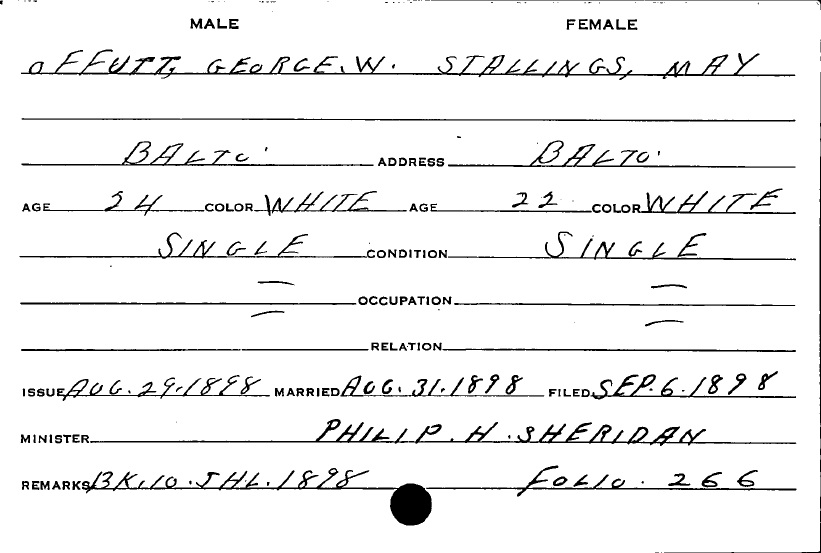 MALE FEMALE
OFFUTT, GEORGE.W. STALLINGS, MAY
BALTO. ADDRESS BALTO.
AGE 24 COLOR WHITE AGE 22 COLOR WHITE
SINGLE CONDITION SINGLE
— OCCUPATION —
— RELATION —
ISSUE AUG. 29.1898 MARRIED AUG. 31.1898 FILED SEP.6.1898
MINISTER PHILIP.H.SHERIDAN
REMARKS BK.10.JHL.1898 FOLIO.266